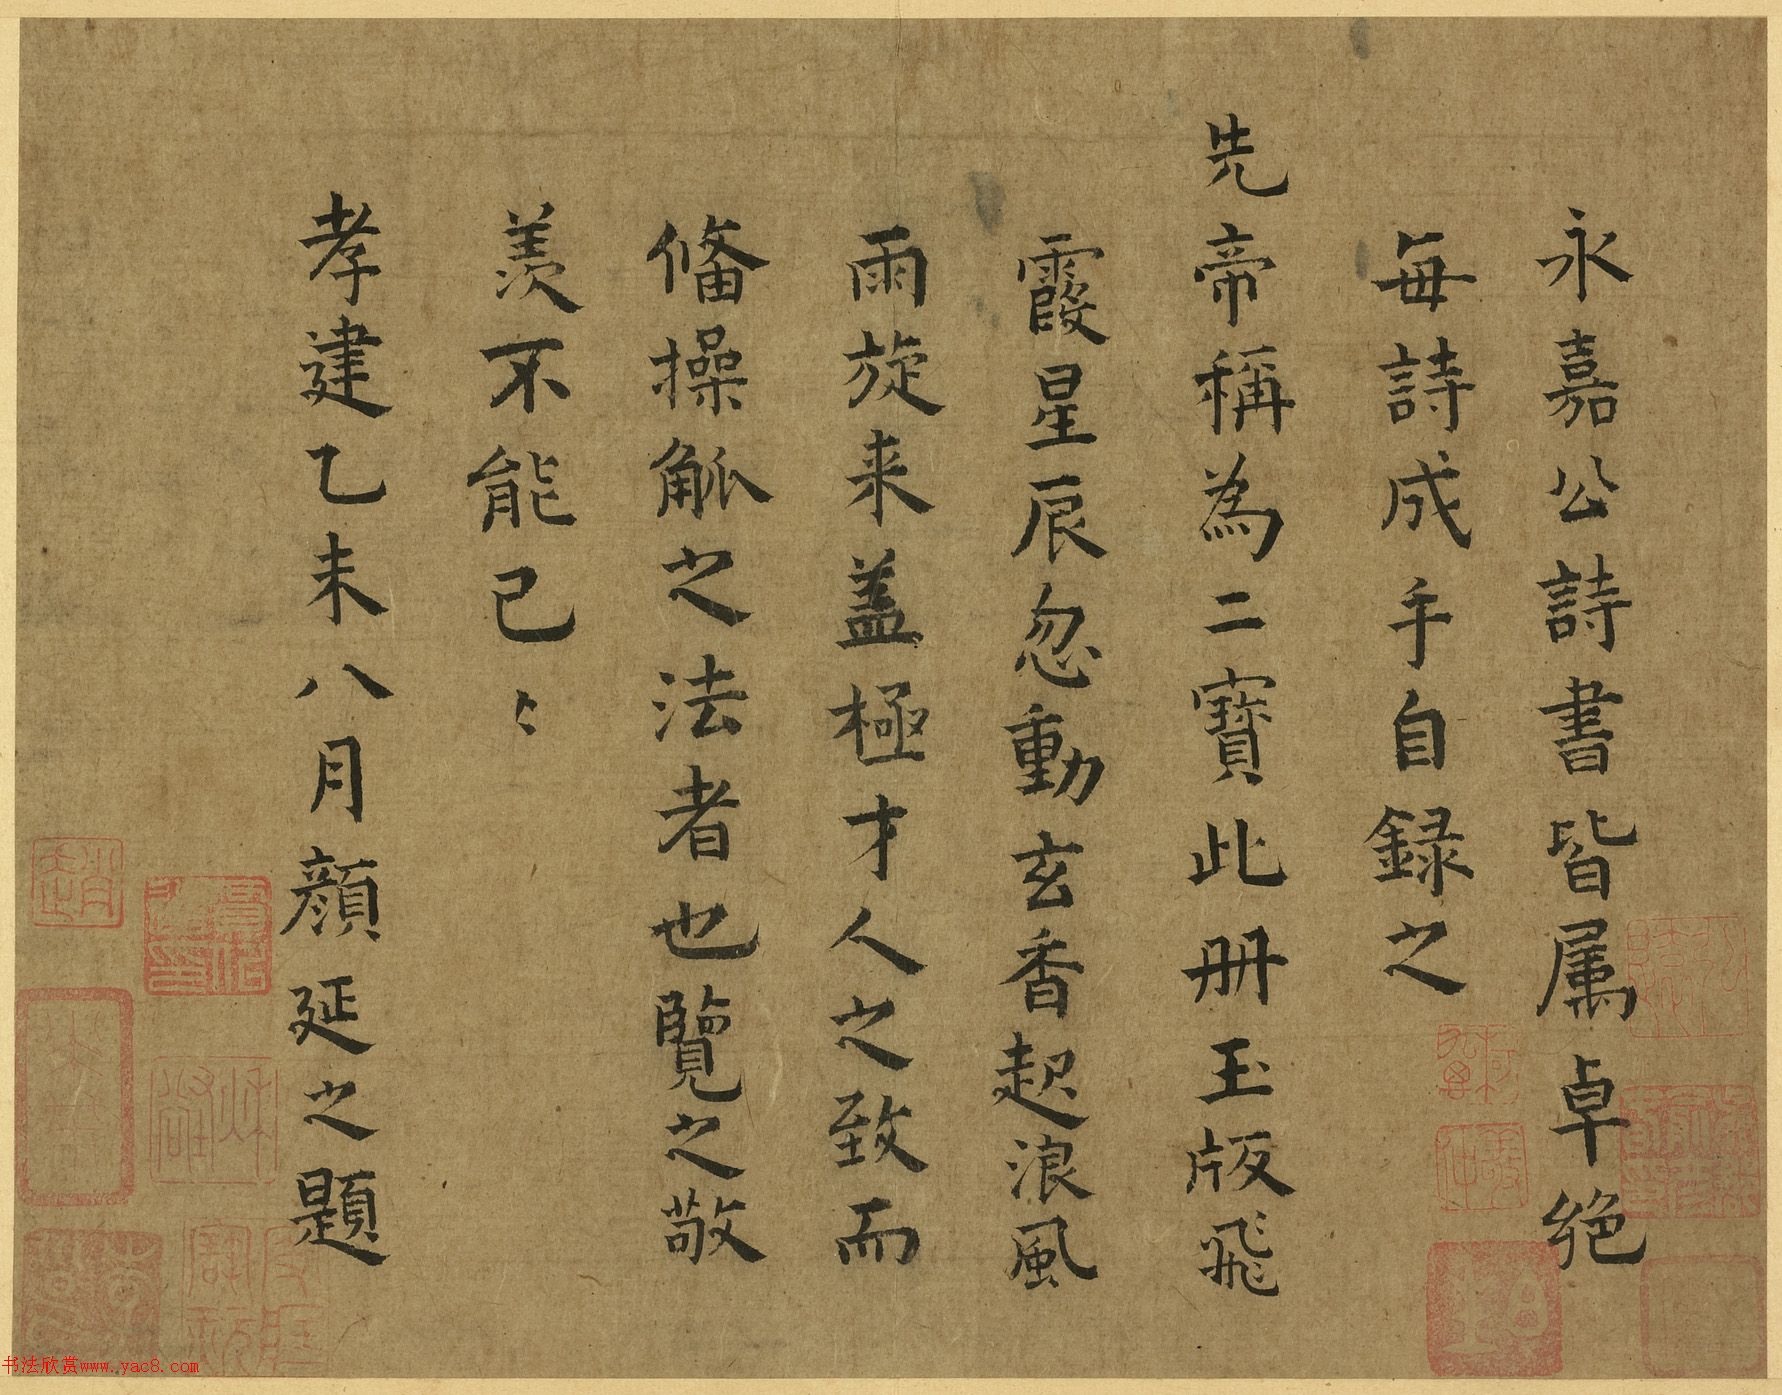 永嘉公詩書皆属卓絶
每詩成手自録之
先帝稱為二寶此册玉版飛
霞星辰忽動玄香起浪風
雨旋来盖極才人之致而
偹操觚之法者也覽之敬
羡不能已〻
孝建乙未八月顔延之題
书法欣赏www.yac8.com